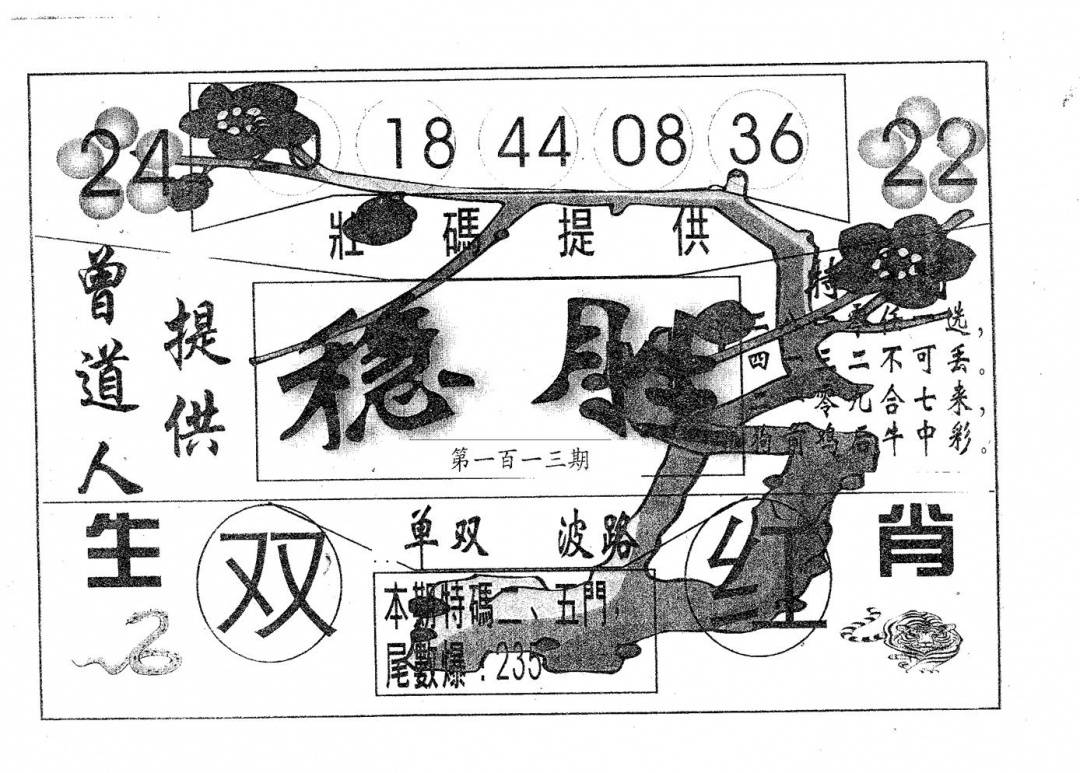 24 18 44 08 36 22
壯碼提供
曾道人
提供
稳胜
第一百一十三期
特
选，
四一三二不可丢。
零九合七来，
狗前鸡后牛中彩。
单双 波路
生肖
双
红
本期特碼二、五門，
尾數爆：235